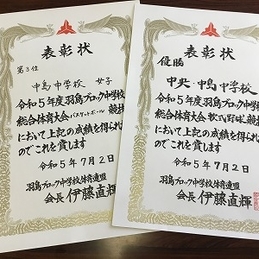 表彰状
第3位
中島中学校 女子
令和5年度羽島ブロック中学校
総合体育大会バスケットボール競技
において上記の成績を得られた
のでこれを賞します
令和5年7月2日
羽島ブロック中学校体育連盟
会長 伊藤直輝
表彰状
優勝
中央・中島中学校
令和5年度羽島ブロック中学校
総合体育大会 軟式野球 競技
において上記の成績を得られた
のでこれを賞します
令和5年7月2日
羽島ブロック中学校体育連盟
会長 伊藤直輝